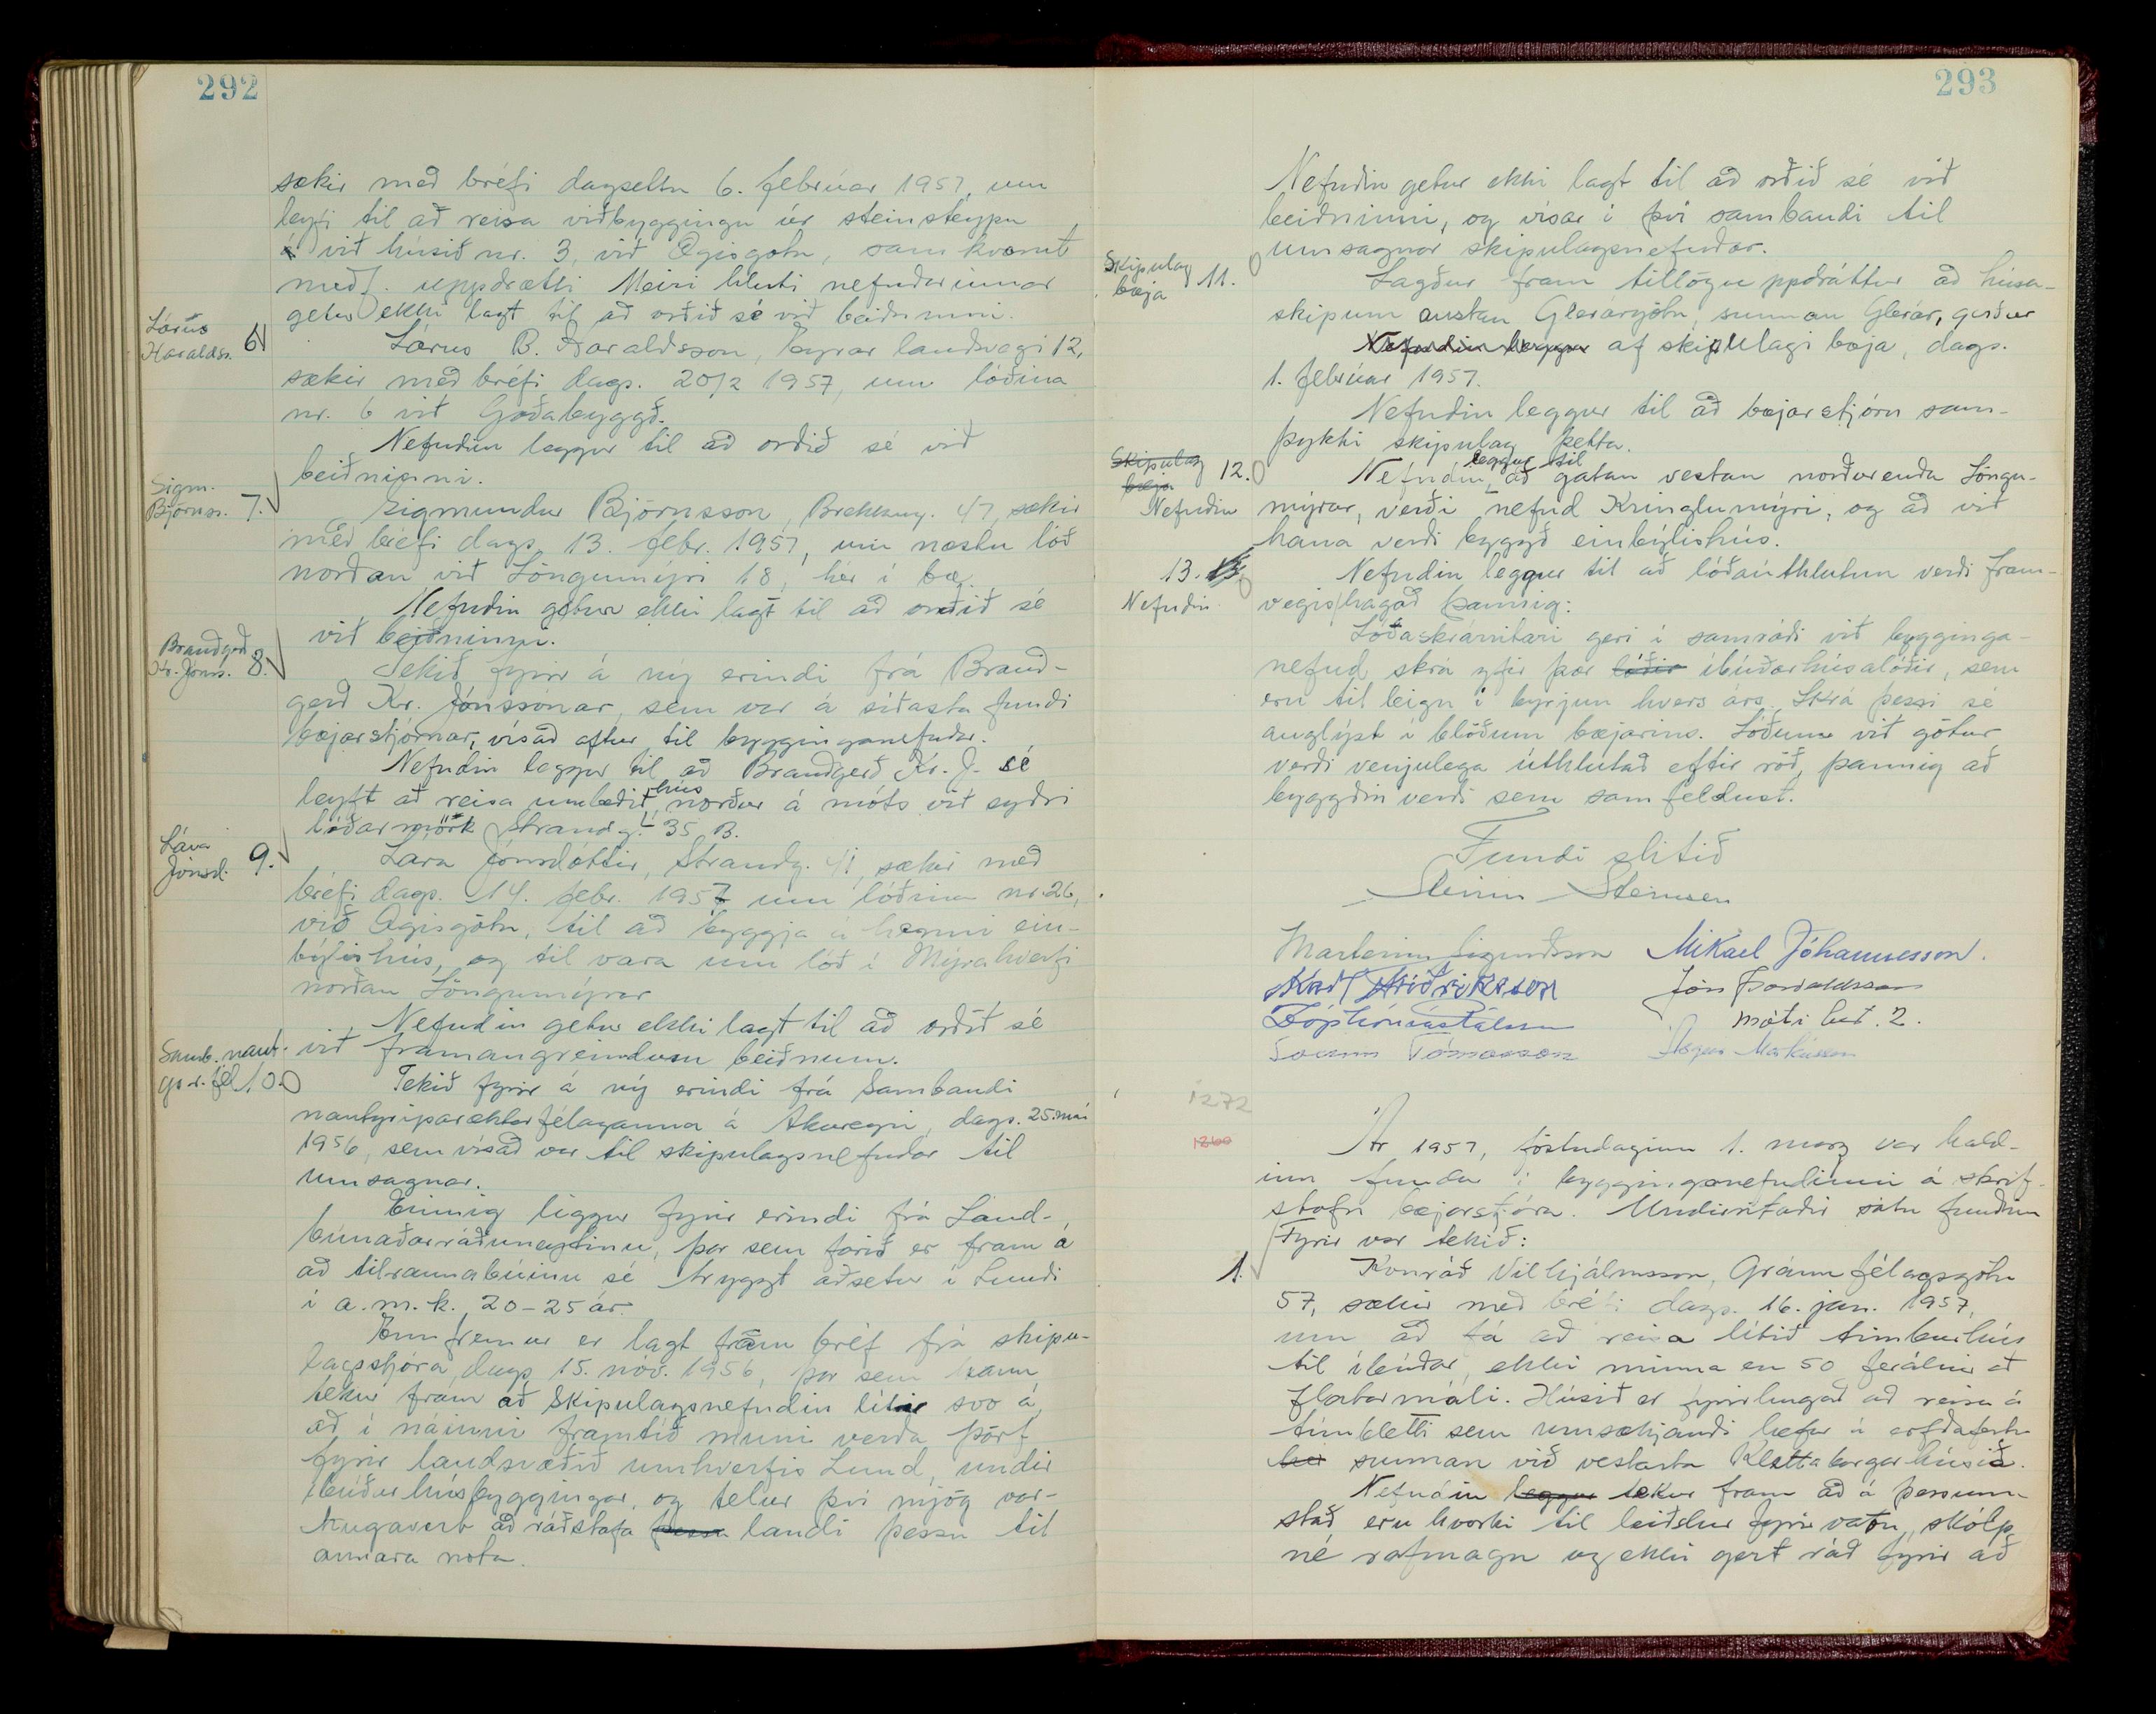 292
sækir með bréfi dagsettu 6. febrúar 1957, um
leyfi til að reisa viðbyggingu úr steinsteypu
við húsið nr. 3, við Ægisgötu, samkvæmt
meðf. uppdrætti Meiri hluti nefndarinnar
getur ekki lagt til að orðið sé við beiðninni.
Lárus
Haraldss. 6
Lárus B. Haraldsson, Byrar landsvegi 12,
sækir með bréfi dags. 20/2 1957, um lóðina
nr. 6 við Goðabyggð.
Nefndin leggur til að orðið sé við
beiðninni.
Sigm.
Björnss. 7.
Sigmundur Björnsson, Brekkug. 47, sækir
með bréfi dags. 13. febr. 1957, um næstu lóð
norðan við Löngumýri 18, hér í bæ.
Nefndin getur ekki lagt til að orðið sé
við beiðninni.
Brandgerð
Kr. Jónss. 8.
Tekið fyrir á ný erindi frá Brand-
gerð Kr. Jónssonar, sem var á síðasta fundi
bæjarstjórnar, vísað aftur til bygginganefndar.
Nefndin leggur til að Brandgerð Kr. J. sé
leyft að reisa umbeðið hús norður á móts við syðri
lóðarmörk Strandg. 35 B.
Lára
Jónsd. 9.
Lára Jónsdóttir, Strandg. 41, sækir með
bréfi dags. 14. febr. 1957 um lóðina nr. 26,
við Ægisgötu, til að byggja á henni ein-
býlishús, og til vara um lóð í Mýrahverfi
norðan Löngumýrar
Nefndin getur ekki lagt til að orðið sé
við framangreindum beiðnum.
Samb. naut-
gr. r. fél. 10.
Tekið fyrir á ný erindi frá Sambandi
nautgriparæktarfélaganna á Akureyri, dags. 25. maí
1956, sem vísað var til skipulagsnefndar til
umsagnar.
Einnig liggur fyrir erindi frá Land-
búnaðarráðuneytinu, þar sem farið er fram á
að tilraunabúinu sé tryggt aðsetur í Lundi
í a.m.k. 20-25 ár.
Ennfremur er lagt fram bréf frá skipu-
lagsstjóra, dags. 15. nóv. 1956, þar sem hann
tekur fram að Skipulagsnefndin lítur svo á,
að í náinni framtíð muni verða þörf
fyrir landsvæðið umhverfis Lund, undir
íbúðarhúsbyggingar, og telur því mjög var-
hugavert að ráðstafa þessu landi þessu til
annara nota.
293
Nefndin getur ekki lagt til að orðið sé við
beiðninni, og vísar í því sambandi til
umsagnar skipulagsnefndar.
Skipulag
bæja 11.
Lagður fram tillöguuppdráttur að húsa-
skipun austan Glerárgötu, sunnan Glerár, gerður
Nefndin leggur af skipulagi bæja, dags.
1. febrúar 1957.
Nefndin leggur til að bæjarstjórn sam-
þykki skipulag þetta.
Skipulag
bæja 12.
Nefndin
Nefndin leggur til að gatan vestan norðurenda Löngu-
mýrar, verði nefnd Kringlumýri, og að við
hana verði byggð einbýlishús.
13.
Nefndin
Nefndin leggur til að lóðaúthlutun verði fram-
vegis hagað þannig:
Lóðaskrárritari geri í samráði við bygginga-
nefnd skrá yfir þær lóðir íbúðarhúsalóðir, sem
eru til leigu í byrjun hvers árs. Skrá þessi sé
auglýst í blöðum bæjarins. Lóðum við götur
verði venjulega úthlutað eftir röð, þannig að
byggðin verði sem samfeldust.
Fundi slitið
Steinn Steinsen
Marteinn Sigurðsson Mikael Jóhannesson.
Karl Friðriksson Jón Þorvaldsson
Zóphónías Árnason móti lið. 2.
Tómas Tómasson Ásgeir Markússon
1272
1260
Ár 1957, föstudaginn 1. marz var hald-
inn fundur í bygginganefndinni á skrif-
stofu bæjarstjóra. Undirritaðir sátu fundinn
Fyrir var tekið:
1.
Konráð Vilhjálmsson, Gránufélagsgötu
57, sækir með bréfi dags. 16. jan. 1957,
um að fá að reisa lítið timburhús
til íbúðar, ekki minna en 50 ferálnir að
flatarmáli. Húsið er fyrirhugað að reisa á
túnbletti sem umsækjandi hefur á erfðafestu
hér sunnan við vestasta Klettaborgarhúsið.
Nefndin leggur tekur fram að á þessum
stað eru hvorki til leiðslur fyrir vatn, skólp
né rafmagn og ekki gert ráð fyrir að